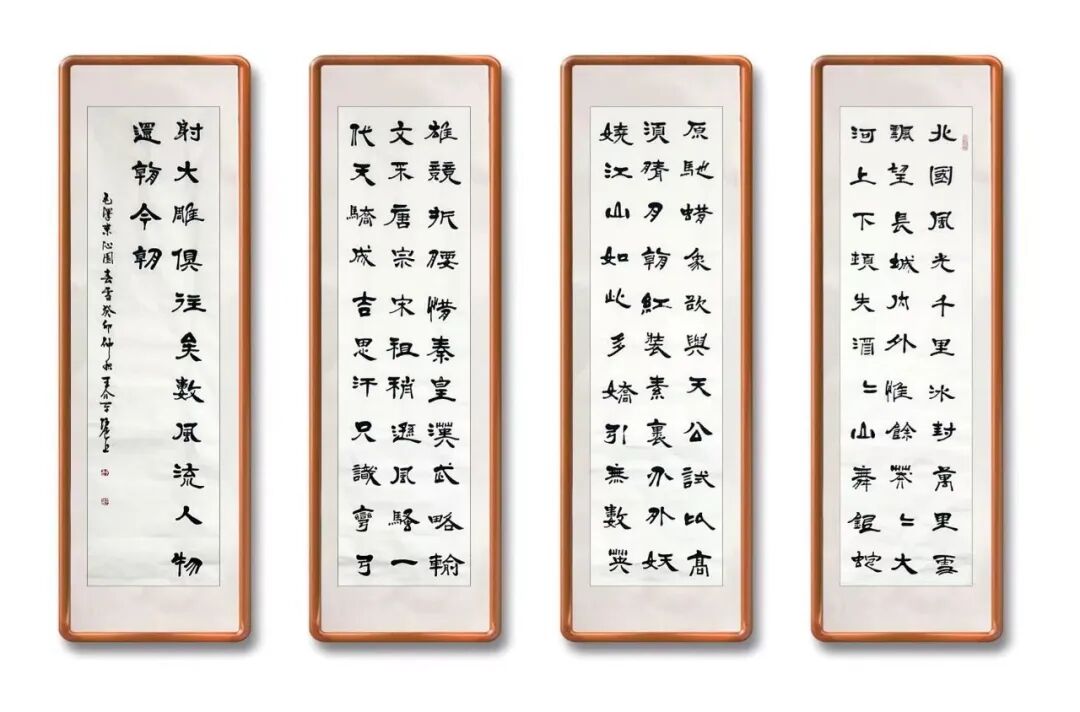 北國風光千里冰封萬里雪
飄望長城内外惟餘莽〻大
河上下頓失滔〻山舞銀蛇
原馳蠟象欲與天公試比髙
須晴日看紅裝素裹分外妖
嬈江山如此多嬌引無數英
雄競折腰惜秦皇漢武略輸
文采唐宗宋祖稍遜風騷一
代天驕成吉思汗只識彎弓
射大雕俱往矣數風流人物
還看今朝
毛澤東沁園春雪癸卯仲秋